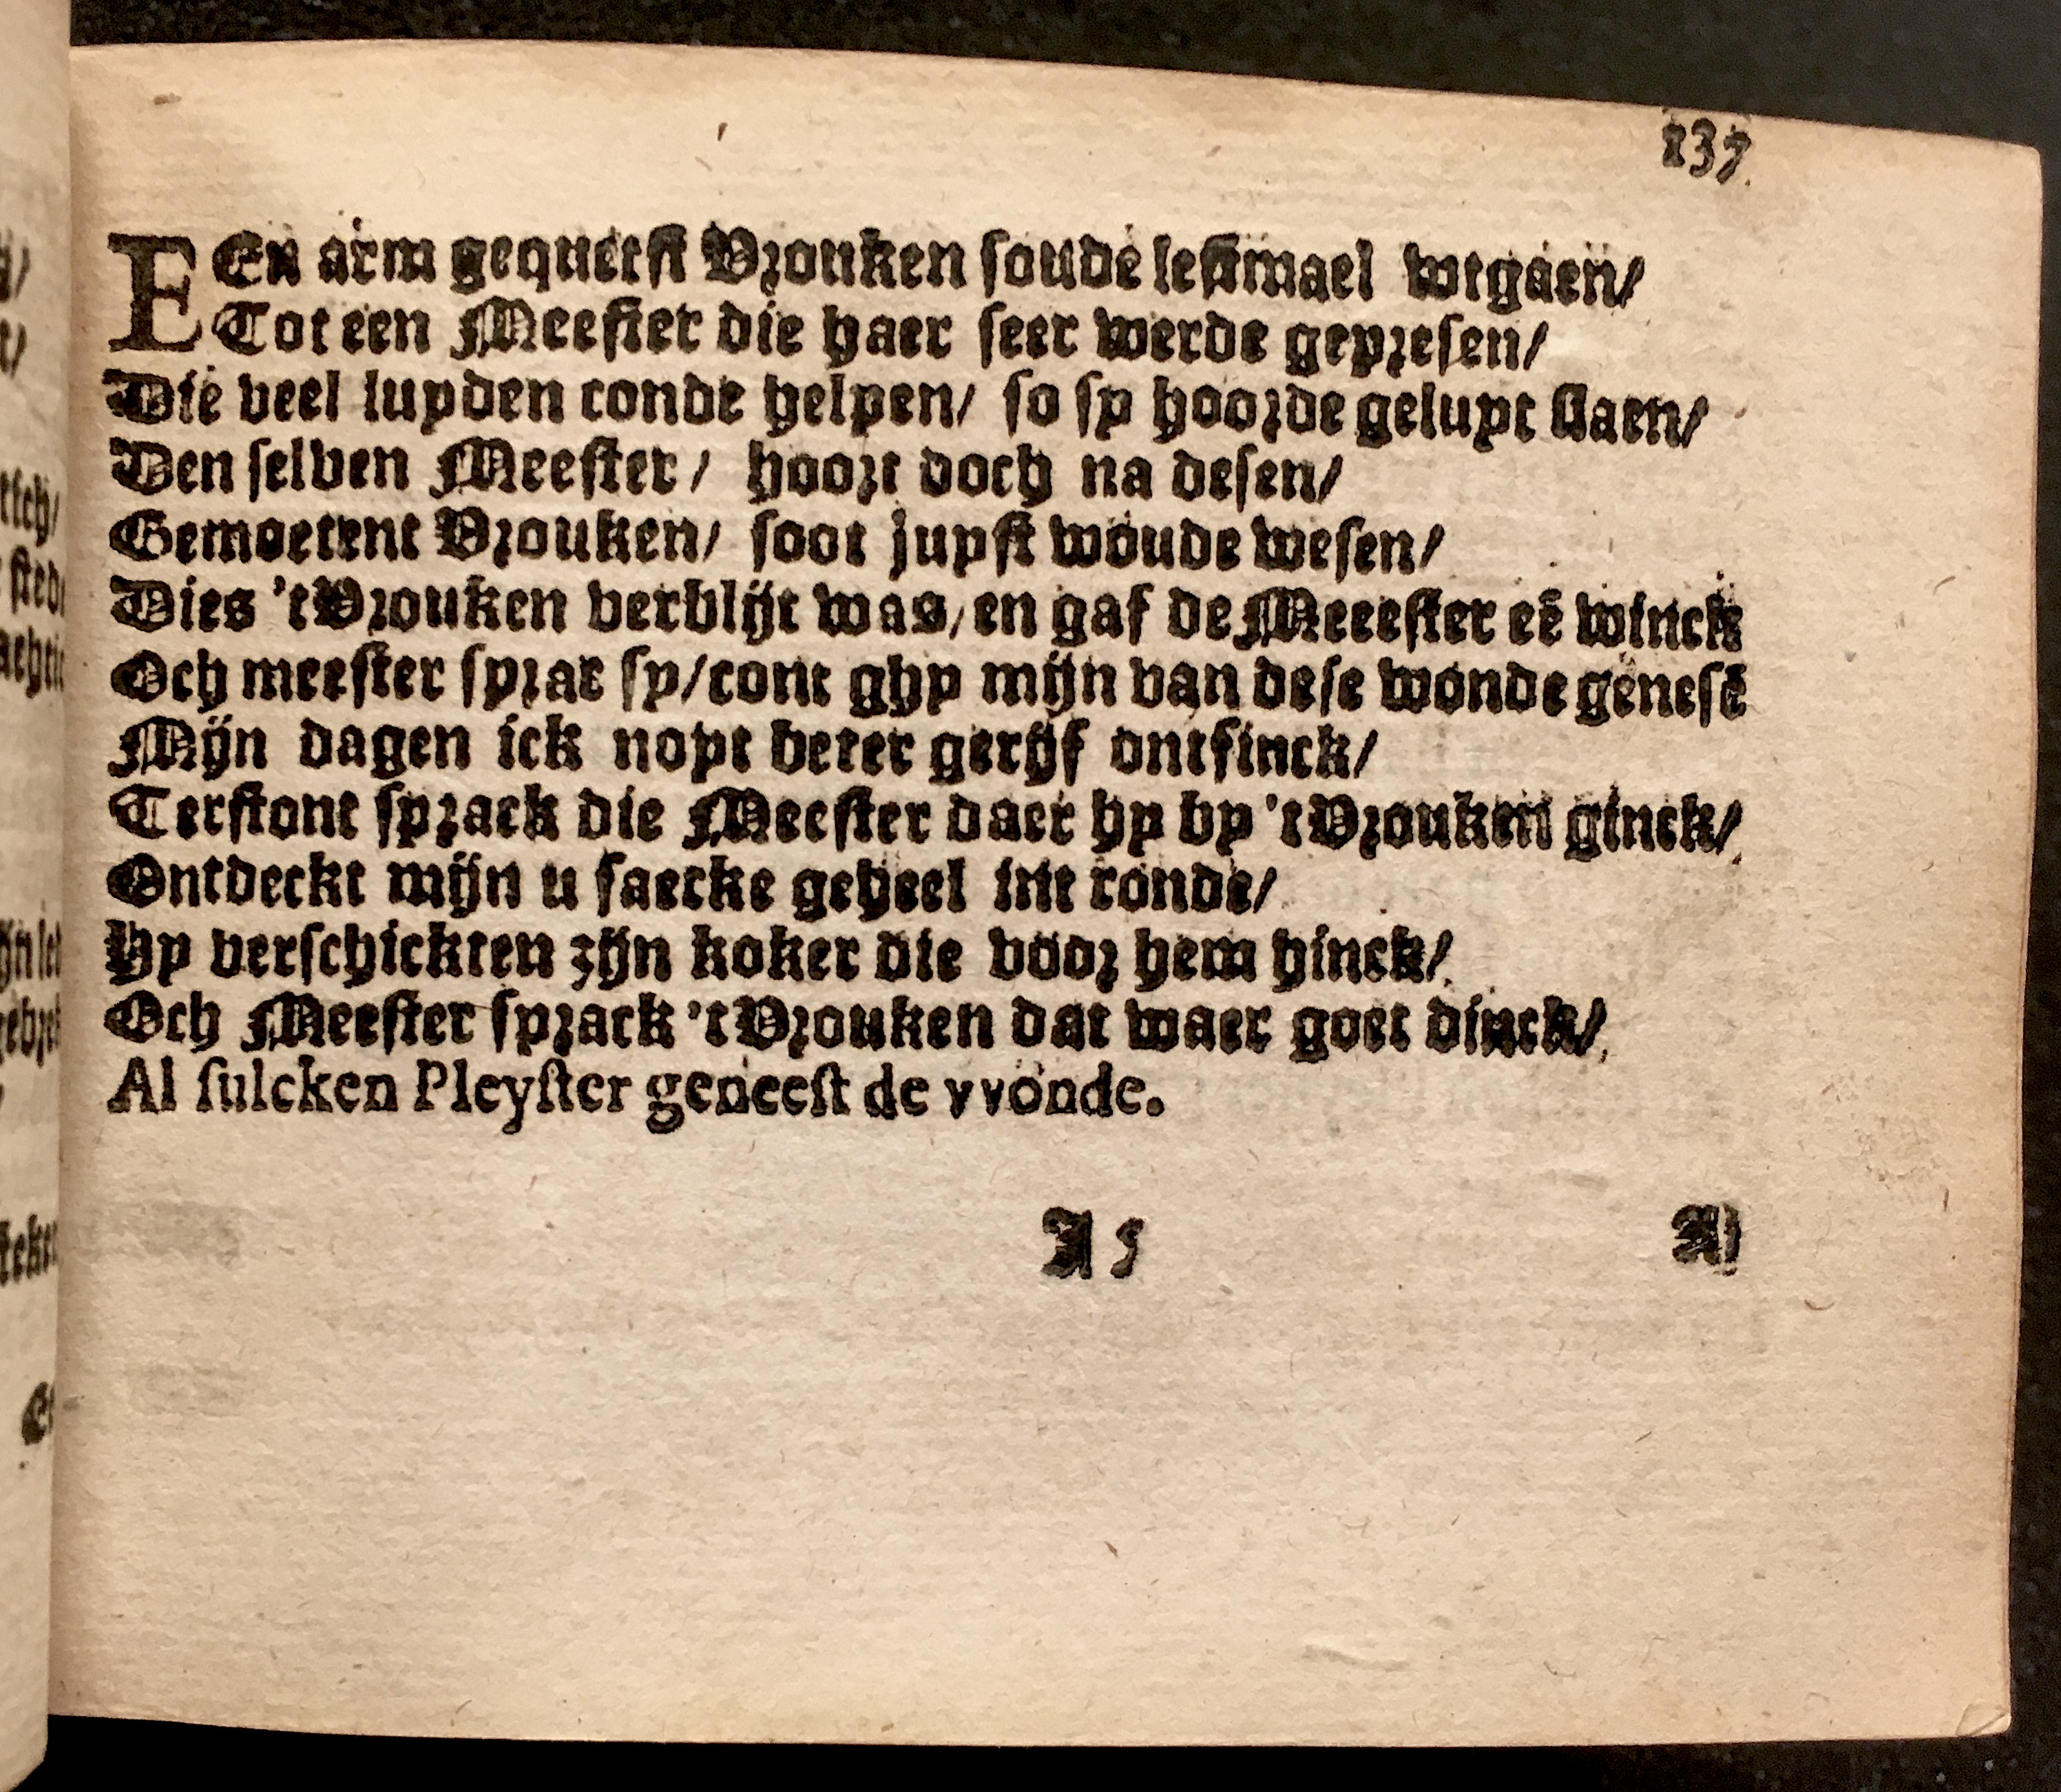 137.
EEn arm gequetst Vrouken soude lestmael wtgaen/
Tot een Meester die haer seer werde gepresen/
Die veel luyden conde helpen/ so sy hoorde geluyt slaen/
Den selven Meester/ hoort doch na desen/
Gemoetent Vrouken/ soot juyst woude wesen/
Dies 't Vrouken verblijt was/en gaf de Meeester eē winck
Och meester sprac sy/cont ghy mijn van dese wonde genesē
Mijn dagen ick noyt beter gerijf ontfinck/
Terstont sprack die Meester daer hy by 't Vrouken ginck/
Ontdeckt mijn u saecke geheel int ronde/
Hy verschickten zijn koker die voor hem hinck/
Och Meester sprack 't Vrouken dat waer goet dinck/
Al sulcken Pleyster geneest de vvonde.
I 5